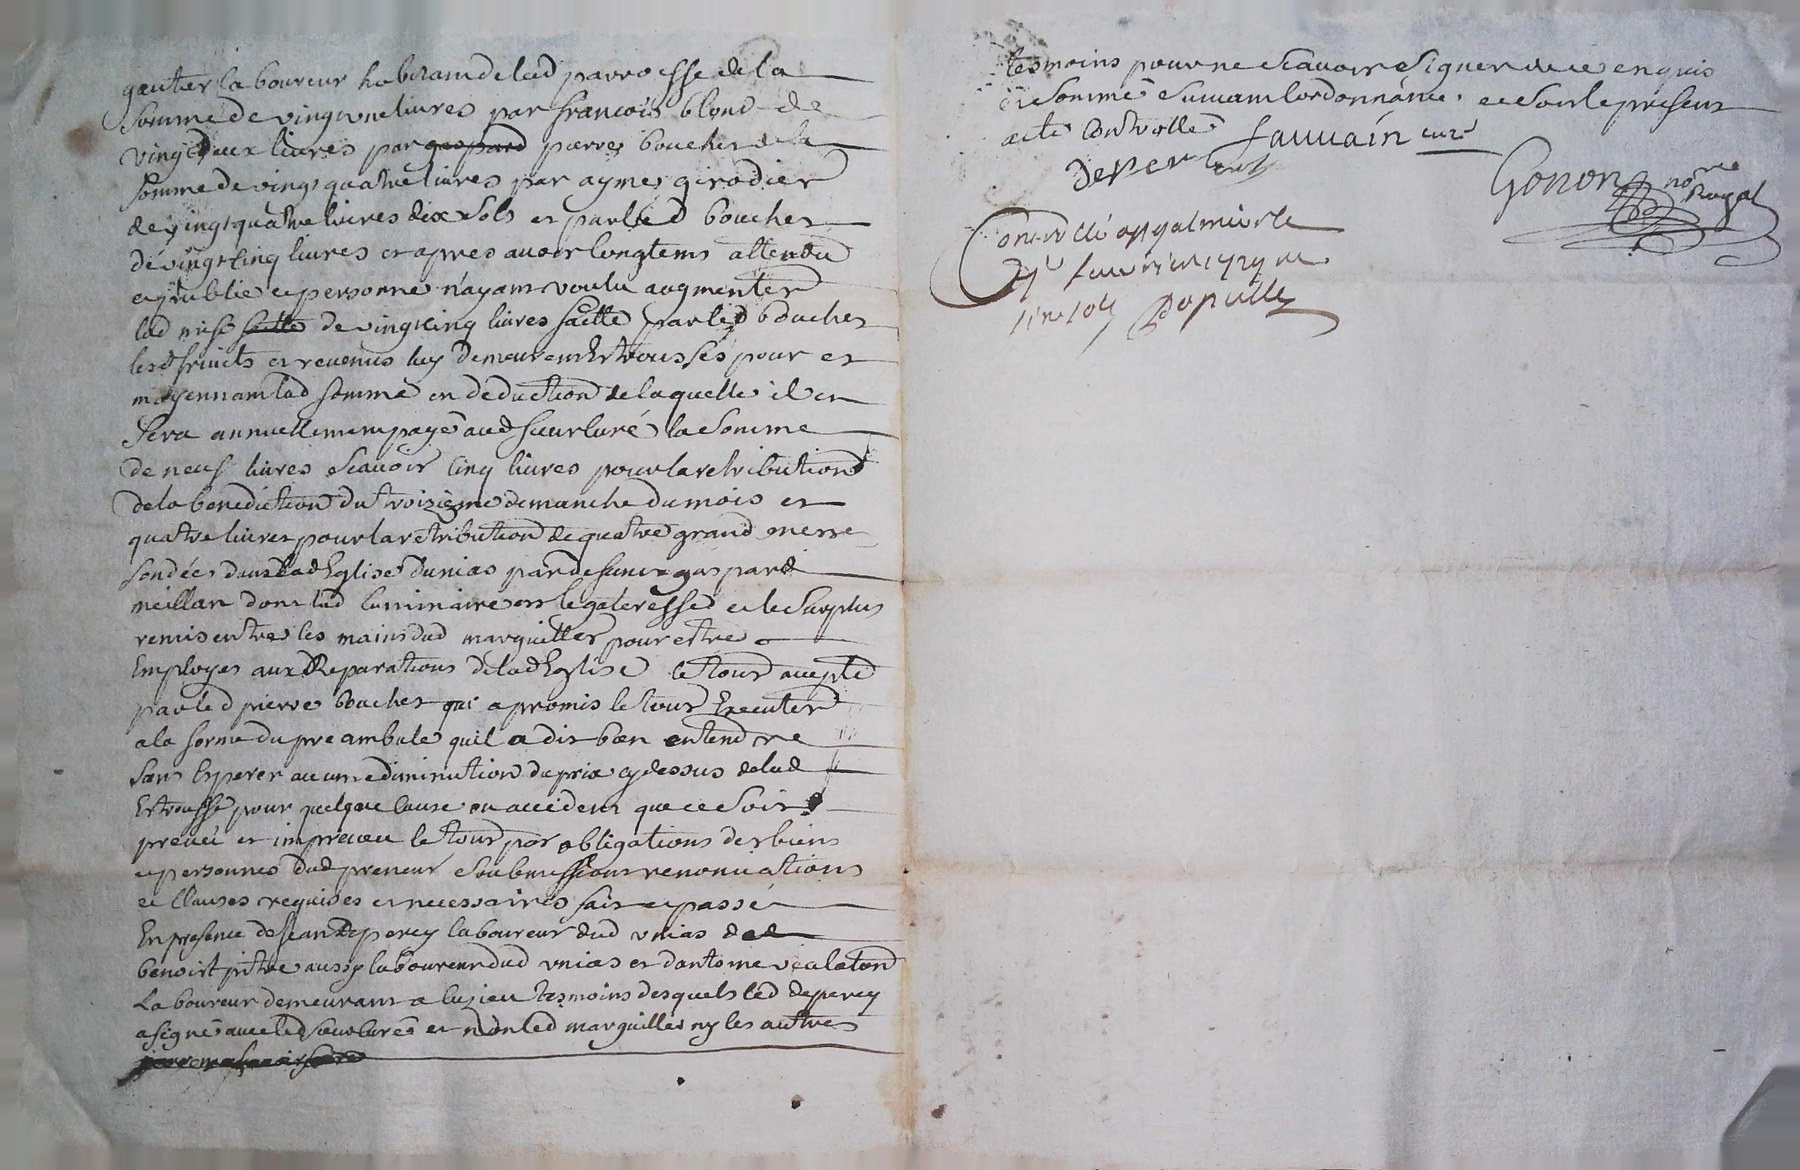 gautier laboureur habitant de lad parroisse de la
Somme de vingt une livres par francois blond de
vingt deux livres par gaspard pierre boucher de la
Somme de vingt quatre livres par aymes girodier
de vingt quatre livres dix sols et par led boucher
de vingt cinq livres et apres avoir longtems attendu
et publié et personne n'ayant voulu augmenter
lad mise faitte de vingt cinq livres faitte par led boucher
lesd fruicts et revenus luy demeurent Estroussés pour et
moyennant lad somme en deduction de laquelle il en
Sera annuellement payé aud sieur curé la Somme
de neuf livres Scavoir cinq livres pour la retribution
de la benediction du troizieme dimanche du mois et
quatre livres pour la retribution de quatre grand messe
fondées dans lad Eglise d'unias par deffunct gaspard
meillan dont lad luminaire est legateresse et le Surplus
remis entre les mains dud marguiller pour estre
Employes aux Reparations de lad Eglise le tout accepté
par led pierre boucher qui a promis le tout Executer
a la forme du preambule quil a dit bien entendre
Sans Esperer aucune diminution du prix cy dessus de lad
Estrousse pour quelque cause ou accident que ce Soit
preveu et impreveu le tout par obligations des biens
et personnes dud preneur Soubmissions renonciations
et Clauses requises et necessaires fait et passé
En presence de Jean Deperey laboureur dud unias de
benoist pitre aussy laboureur dud unias et d'antoine
Laboureur demeurant a luzieu tesmoins desquels led deperey
a signé avec led Sieur curé et non led marguiller ny les autres
tesmoins pour ne Scavoir Signer de ce enquis
et Sommé Suivant lordonnance et Soit le present
acte Controllé
Fauvain curé
Gonon no^re Royal
Controllé a St galmier le